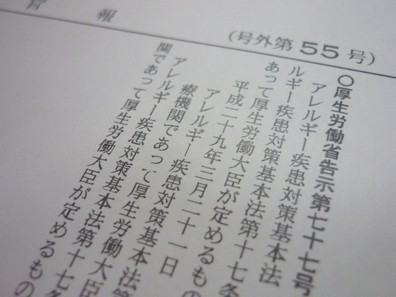 官報
(号外第55号)
〇厚生労働省告示第七十七号
アレルギー疾患対策基本法
ルギー疾患対策基本法第十七条
あって厚生労働大臣が定めるもの
平成二十九年三月二十一日
アレルギー疾患対策基本法
療機関であって厚生労働大臣
アレルギー疾患対策基本法第十七条
関であって厚生労働大臣が定めるもの